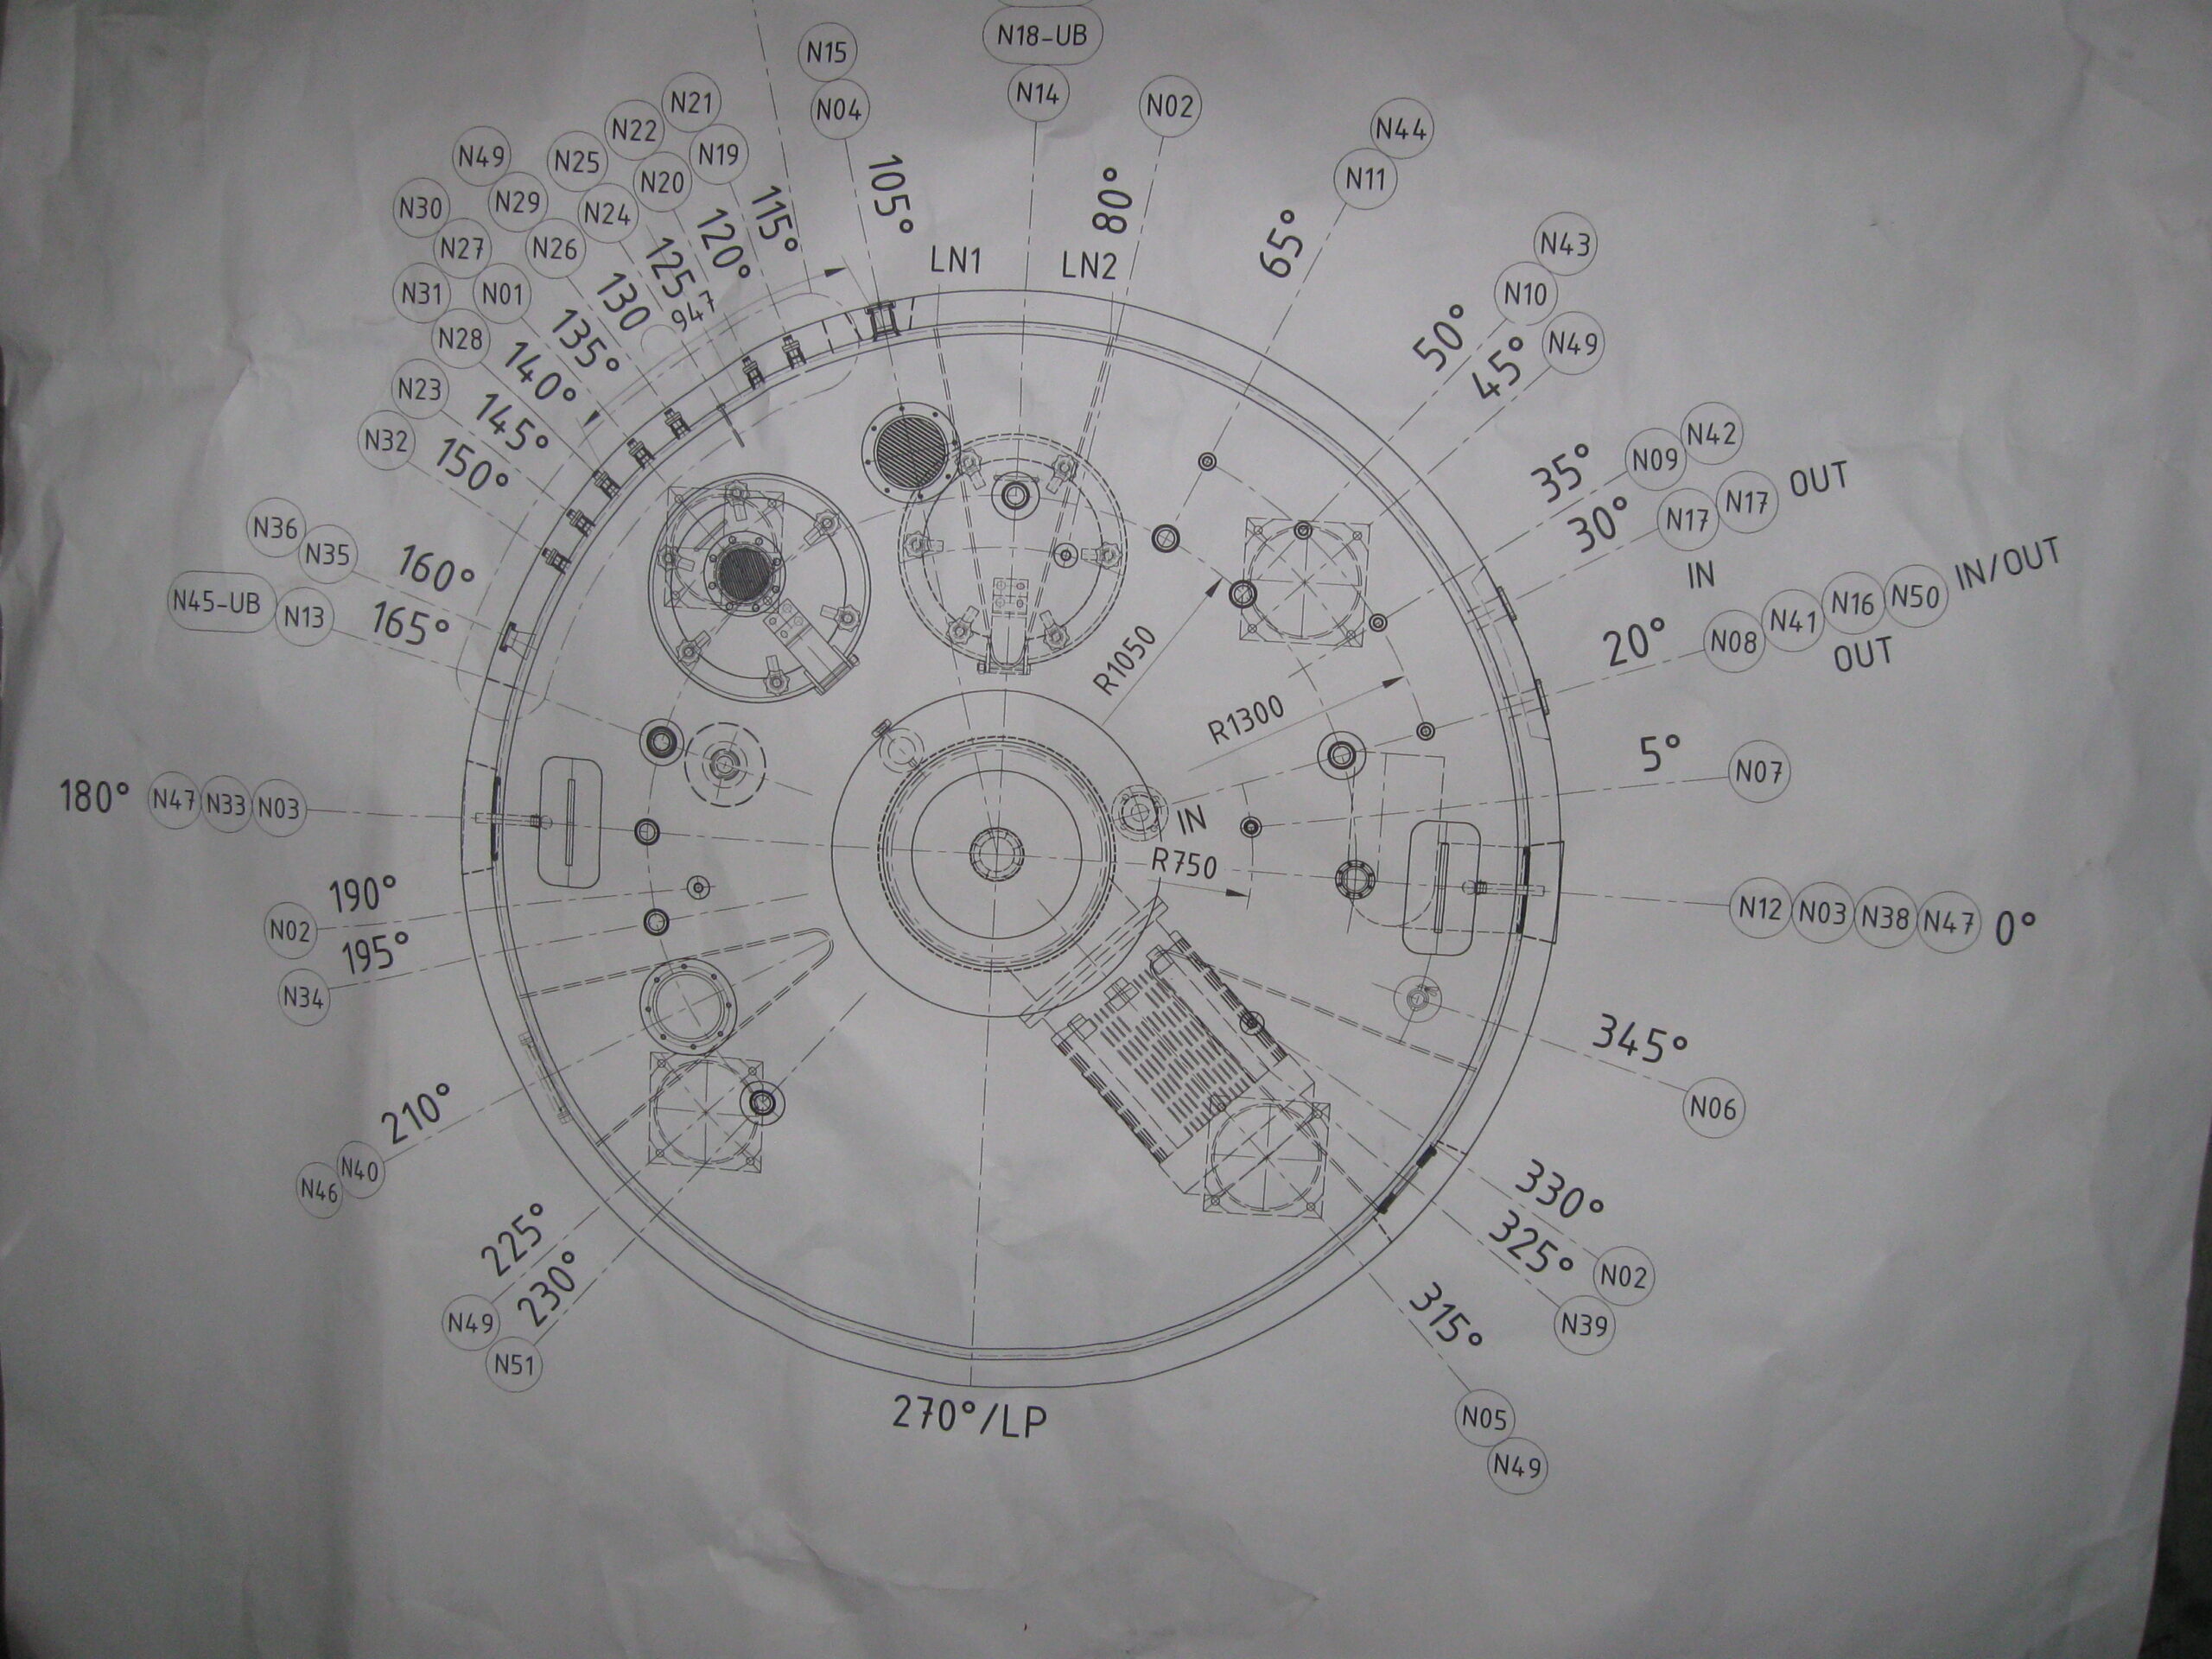 N18-UB
N15
N14
N04
N02
N21
N22
N19
N49
N25
N20
N30
N29
N24
N27
N26
N31
N01
N28
N23
N32
105°
80°
115°
120°
125°
130
947
135°
140°
145°
150°
LN1
LN2
N44
N11
65°
N43
N10
50°
45°
N49
N42
N09
35°
N17 N17 OUT
30°
IN
N08 N41 N16 N50 IN/OUT
20°
OUT
N36
N35
160°
N45-UB N13
165°
R1050
R1300
5°
N07
180° N47 N33 N03
IN
R750
N12 N03 N38 N47 0°
190°
N02
195°
N34
345°
N06
210°
N40
N46
330°
N02
325°
N39
315°
225°
230°
N49
N51
270°/LP
N05
N49